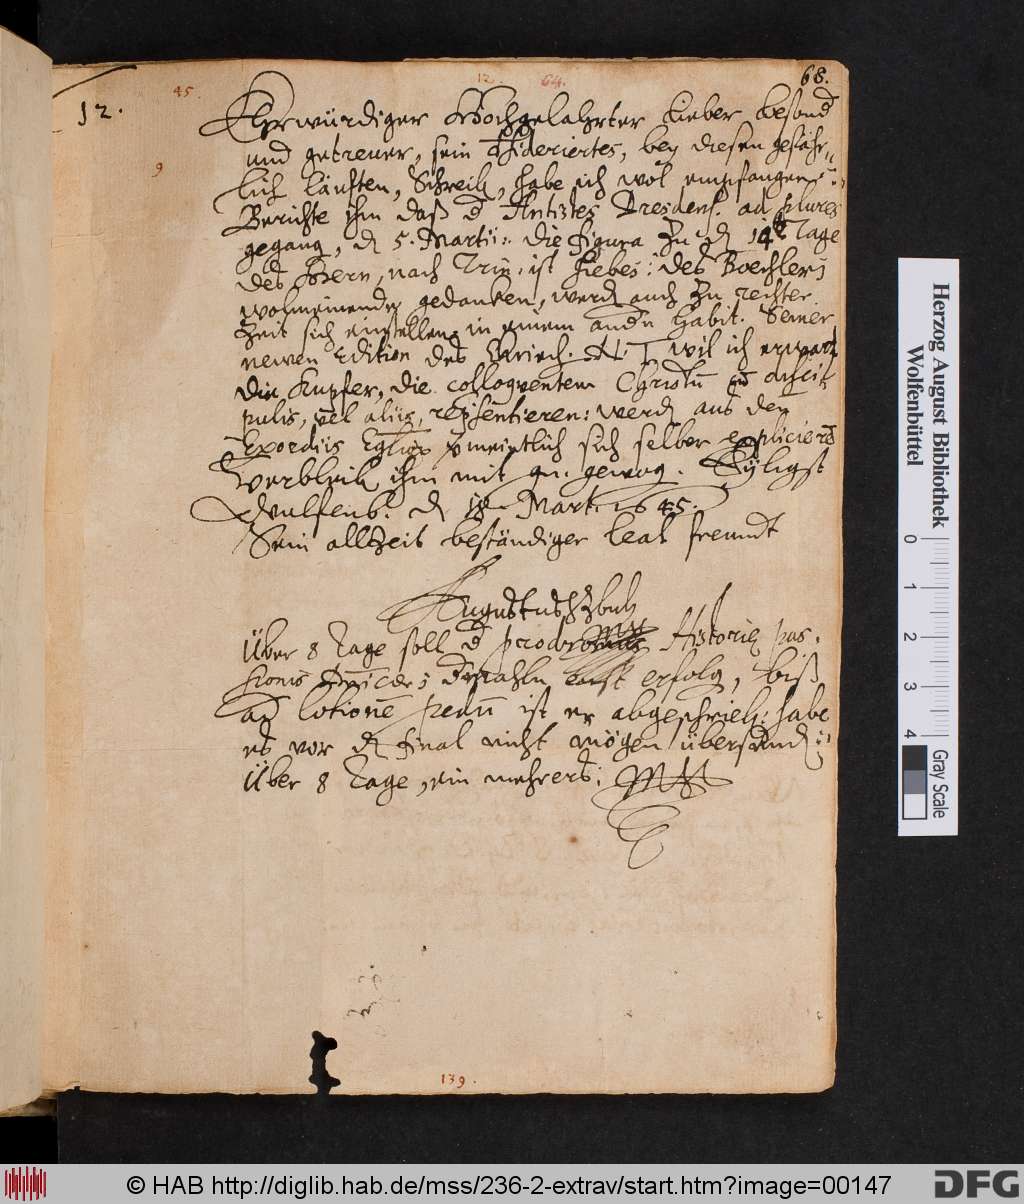 68.
12.
64.
45.
12.
Ehrwürdiger Hochgelahrter Lieber besond
und getreuer, sein desideriertes, bey diesen gefähr„
lich läufften, Schreib, habe ich wol empfangen
9
Berichte ihm daß d Antistes Dresdens. ad plures
gegang, d 5. Martii: die figura zu d 14 Tage
des Hern, nach Trin: ist liebes: des Boecklers
wolmeinende gedanken, werd auch zu rechter
Zeit sich einstellen, in einem andn habit. Seiner
newen Edition des Griech. N. T. wil ich erwart
Die Kupfer, die colloquentem Christu cu disci
pulis, vel aliis, repsentieren: werd aus den
Exordiis vmeintlich sich selber explicierē
Verbleib ihm mit gn. gewog. Eyligst
Wulfenb. d 18 Mart. 1645.
Sein allzeit beständiger leal freundt
Augustus HzBuL
Über 8 Tage soll d prodromus Historiæ pas„
sionis erfolg, biß
ad lotionē pedū ist er abgeschrieb: habe
es vor d final nicht mögen übersend:
Über 8 Tage, ein mehrers:
139.
Herzog August Bibliothek
Wolfenbüttel
0 1 2 3 4
Gray Scale
© HAB http://diglib.hab.de/mss/236-2-extrav/start.htm?image=00147
DFG